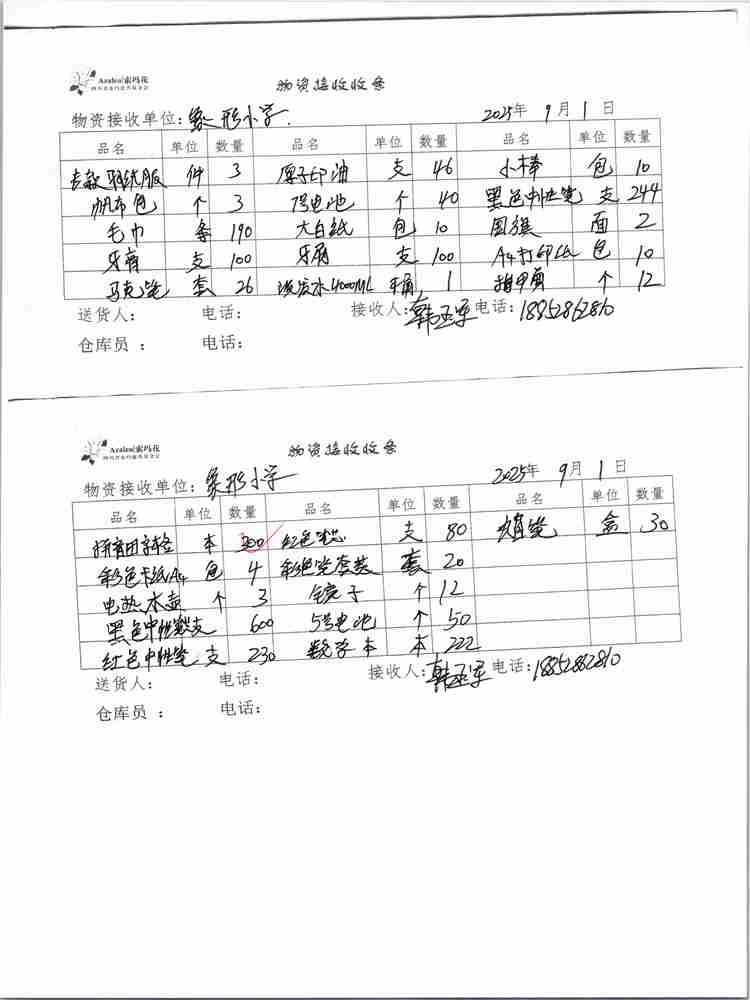 Azalea|索玛花
四川省索玛慈善基金会
物资接收收条
物资接收单位:象形小学. 2025年 9月 1日
品名 单位 数量 品名 单位 数量 品名 单位 数量
件 3 原子印油 支 46 小棒 包 10
帆布包 个 3 7号电池 个 40 黑色中性笔 支 244
毛巾 条 190 大白纸 包 10 国旗 面 2
牙膏 支 100 牙刷 支 100 A4打印纸 包 10
马克笔 套 26 洗发水4000ML 桶 1 指甲剪 个 12
送货人: 电话: 接收人: 电话:18852862810
仓库员 : 电话:
Azalea|索玛花
四川省索玛慈善基金会
物资接收收条
物资接收单位:象形小学 2025年 9月 1日
品名 单位 数量 品名 单位 数量 品名 单位 数量
拼音田字格 本 300 红色笔芯 支 80 铅笔 盒 30
彩色卡纸A4 包 4 彩色笔套装 套 20
电热水壶 个 3 镜子 个 12
黑色中性笔 支 600 5号电池 个 50
红色中性笔 支 230 数学本 本 222
送货人: 电话: 接收人: 电话:18852862810
仓库员 : 电话: